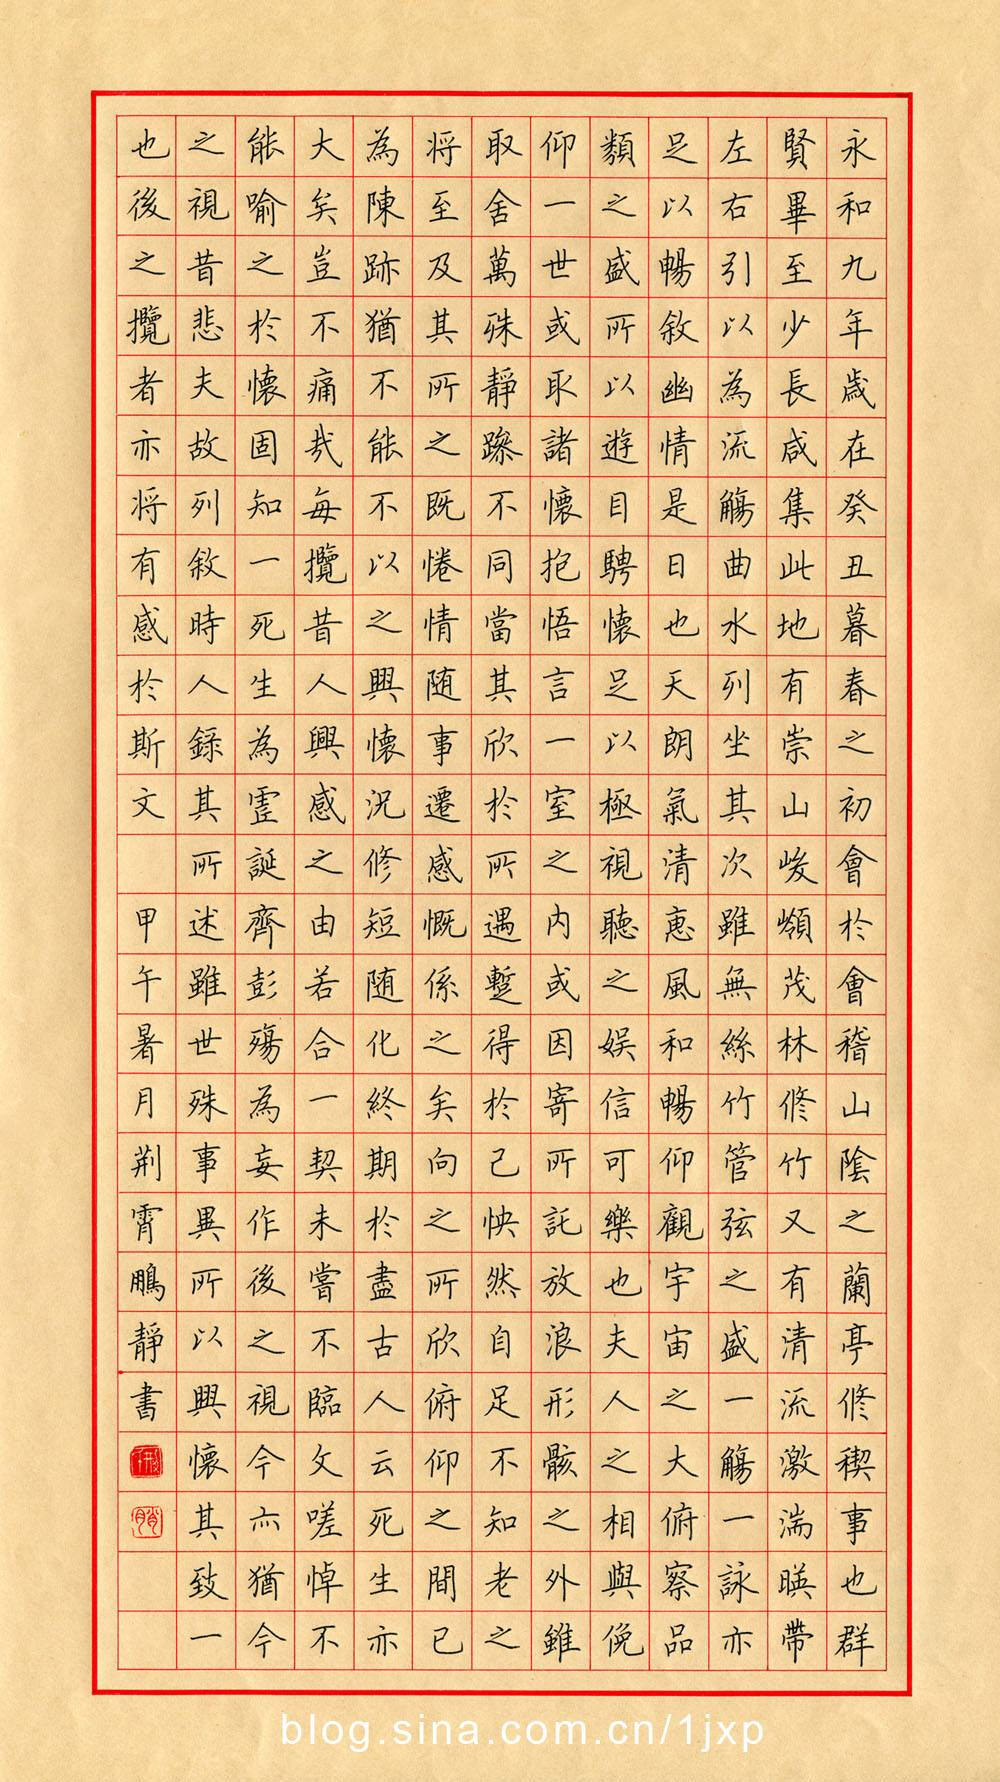 永和九年歲在癸丑暮春之初會於會稽山陰之蘭亭修稧事也群
賢畢至少長咸集此地有崇山峻嶺茂林修竹又有清流激湍暎帶
左右引以為流觴曲水列坐其次雖無絲竹管弦之盛一觴一詠亦
足以暢敘幽情是日也天朗氣清惠風和暢仰觀宇宙之大俯察品
類之盛所以遊目騁懷足以極視聽之娛信可樂也夫人之相與俛
仰一世或取諸懷抱悟言一室之内或因寄所託放浪形骸之外雖
取舍萬殊靜躁不同當其欣於所遇蹔得於己怏然自足不知老之
将至及其所之既惓情随事遷感慨係之矣向之所欣俯仰之間已
為陳跡猶不能不以之興懷況修短随化終期於盡古人云死生亦
大矣豈不痛哉每攬昔人興感之由若合一契未嘗不臨文嗟悼不
能喻之於懷固知一死生為虛誕齊彭殤為妄作後之視今亦猶今
之視昔悲夫故列敘時人錄其所述雖世殊事異所以興懷其致一
也後之攬者亦将有感於斯文 甲午暑月荆霄鵬靜書
blog.sina.com.cn/1jxp